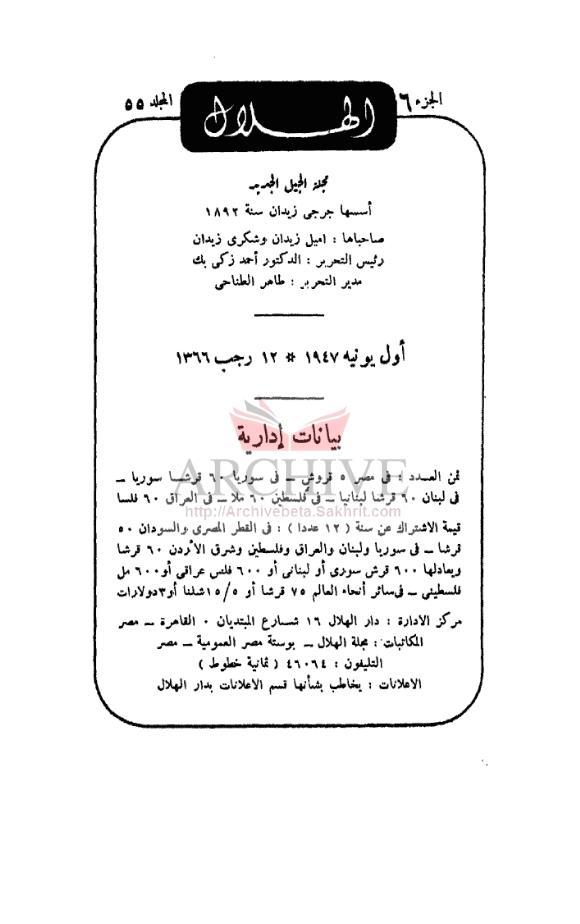 الجزء ٦ الهلال المجلد ٥٥
مجلة الجيل الجديد
أسسها جرجى زيدان سنة ١٨٩٢
صاحباها : اميل زيدان وشكرى زيدان
رئيس التحرير : الدكتور أحمد زكى بك
مدير التحرير : طاهر الطناحى
أول يونيه ١٩٤٧ * ١٢ رجب ١٣٦٦
بيانات إدارية
ثمن العدد : فى مصر ٥ قروش ــ فى سوريا ٦٠ قرشا سوريا ــ
ARCHIVE
فى لبنان ٦٠ قرشا لبنانيا ــ فى فلسطين ٦٠ ملا ــ فى العراق ٦٠ فلسا
http://Archivebeta.Sakhrit.com
قيمة الاشتراك عن سنة ( ١٢ عددا ) : فى القطر المصرى والسودان ٥٠
قرشا ــ فى سوريا ولبنان والعراق وفلسطين وشرق الأردن ٦٠ قرشا
ويعادلها ٦٠٠ قرش سورى أو لبنانى أو ٦٠٠ فلس عراقى أو ٦٠٠ مل
فلسطينى ــ فى سائر أنحاء العالم ٧٥ قرشا أو ١٥/٥ شلنا أو ٣ دولارات
مركز الادارة : دار الهلال ١٦ شارع المبتديان ٠ القاهرة ــ مصر
المكاتبات : مجلة الهلال ــ بوستة مصر العمومية ــ مصر
التليفون : ٤٦٠٦٤ ( ثمانية خطوط )
الاعلانات : يخاطب بشأنها قسم الاعلانات بدار الهلال